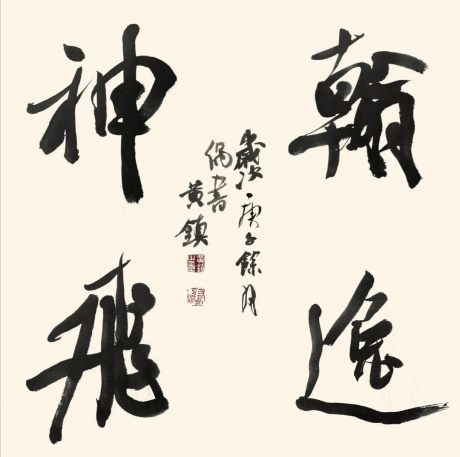 翰逸
歲次庚子餘月
偶書
黄鎮
神飛